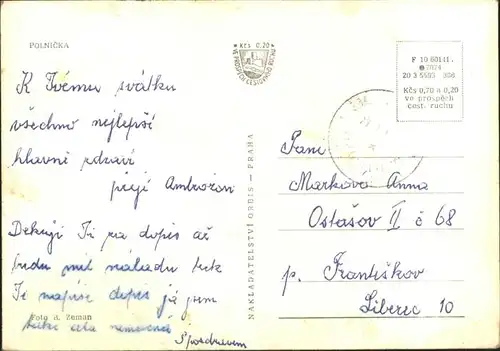 POLNIČKA
Kčs 0.20
VE PROSPĚCH CESTOVNÍHO RUCHU
F 10 60141.
20 3 5593 056
Kčs 0,70 a 0,20
ve prospěch
cest. ruchu
K Tvému svátku
všechno nejlepší
hlavně zdraví
přejí Ambrožovi
Děkuji Ti za dopis až
budu mít náladu tak
Ti napíše dopis já jsem
Foto A. Zeman
celá nemocná
S pozdravem
NAKLADATELSTVÍ ORBIS — PRAHA
Paní
Markova Anna
Ostašov II č 68
p. Františkov
Liberec 10